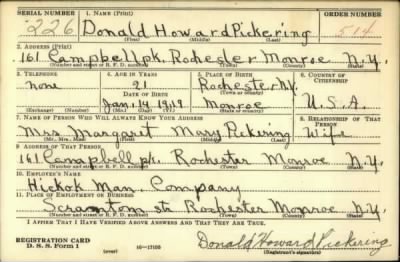 SERIAL NUMBER 1. NAME (Print) ORDER NUMBER
226 Donald Howard Pickering 514
(First) (Middle) (Last)
2. ADDRESS (Print)
161 Campbell pk. Rochester Monroe N.Y.
(Number and street or R. F. D. number) (Town) (County) (State)
3. TELEPHONE 4. AGE IN YEARS 5. PLACE OF BIRTH 6. COUNTRY OF CITIZENSHIP
none 21 Rochester N.Y.
DATE OF BIRTH (Town or county)
Jan. 14 1919 Monroe U.S.A.
(Exchange) (Number) (Mo.) (Day) (Yr.) (State or country)
7. NAME OF PERSON WHO WILL ALWAYS KNOW YOUR ADDRESS 8. RELATIONSHIP OF THAT PERSON
Mrs Margaret Mary Pickering Wife
(Mr., Mrs., Miss) (First) (Middle) (Last)
9. ADDRESS OF THAT PERSON
161 Campbell pk. Rochester Monroe N.Y.
(Number and street or R. F. D. number) (Town) (County) (State)
10. EMPLOYER'S NAME
Hickok Man. Company
11. PLACE OF EMPLOYMENT OR BUSINESS
Scrantom st Rochester Monroe N.Y.
(Number and street or R. F. D. number) (Town) (County) (State)
I AFFIRM THAT I HAVE VERIFIED ABOVE ANSWERS AND THAT THEY ARE TRUE.
REGISTRATION CARD
D. S. S. Form 1 (over) 16—17105 Donald Howard Pickering
(Registrant's signature)